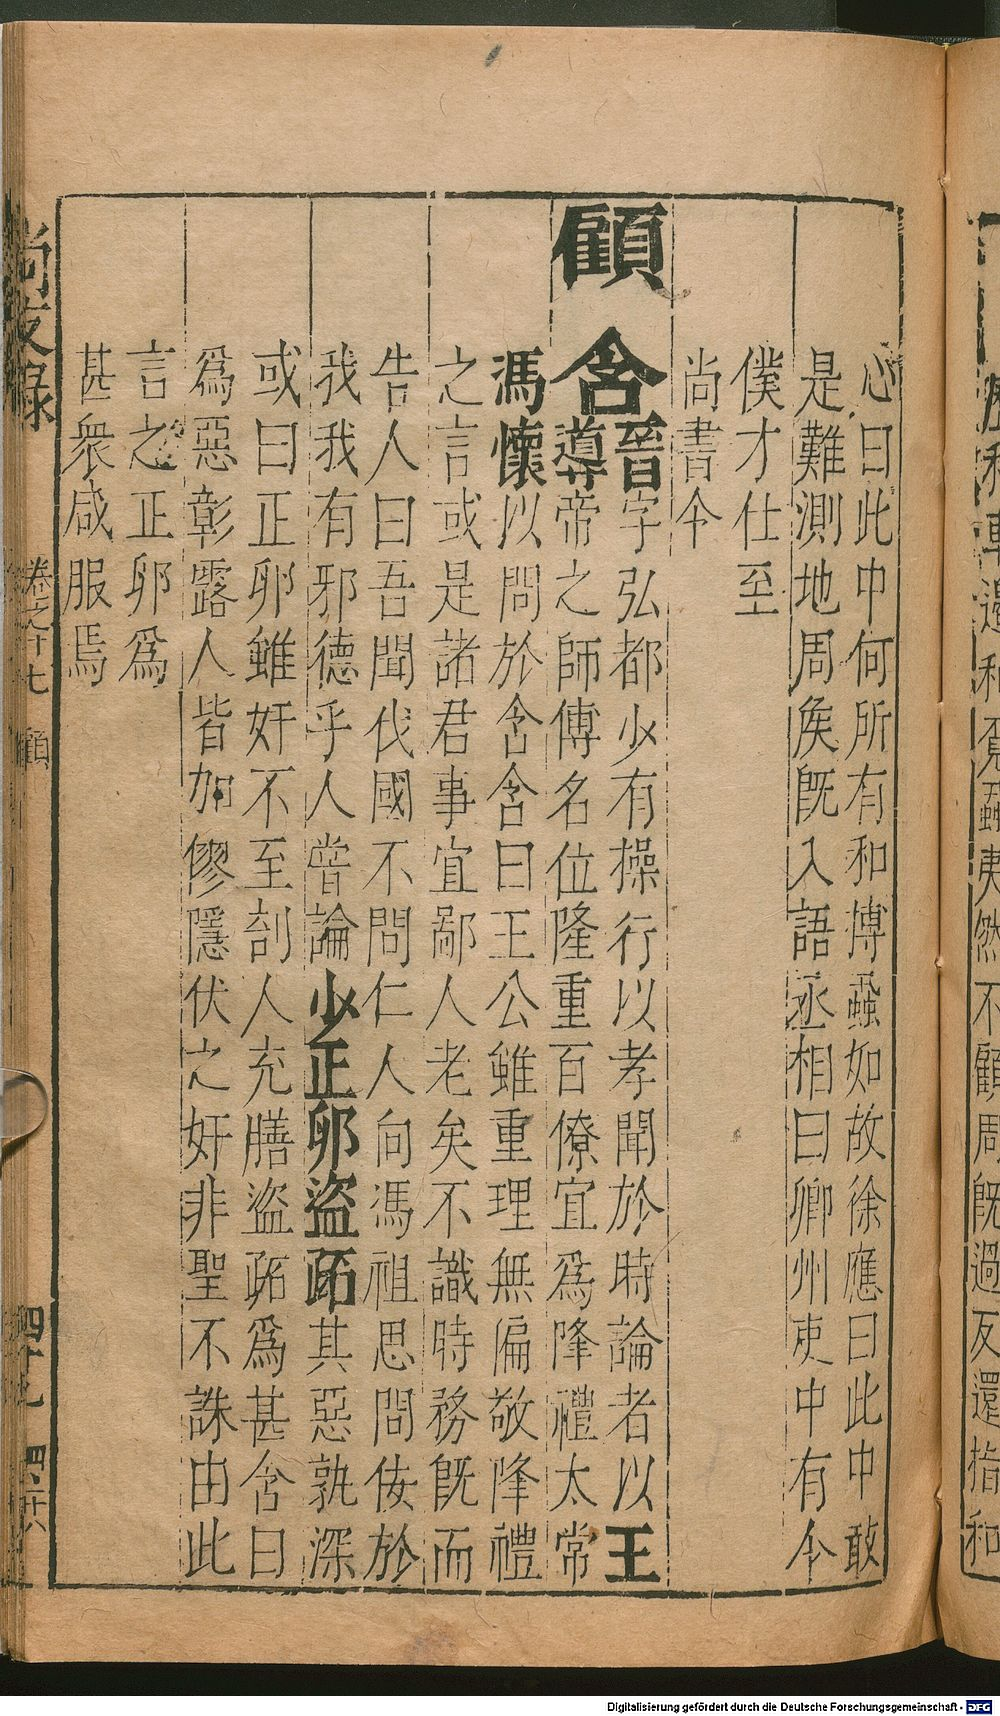 心曰此中何所有和搏蝨如故徐應曰此中敢
是難測地周矦旣入語丞相曰卿州吏中有令
僕才仕至
尚書令
顧含
晉字弘都少有操行以孝聞於時論者以王
導帝之師傅名位隆重百僚宜爲降禮太常
馮懷以問於含含曰王公雖重理無偏敬降禮
之言或是諸君事宜鄙人老矣不識時務旣而
告人曰吾聞伐國不問仁人向馮祖思問佞於
我我有邪德乎人嘗論少正卯盜跖其惡孰深
或曰正卯雖奸不至剖人充膳盜跖爲甚含曰
爲惡彰露人皆加僇隱伏之奸非聖不誅由此
言之正卯爲
甚衆咸服焉
尚友錄
卷之十七 顧
四十七
Digitalisierung gefördert durch die Deutsche Forschungsgemeinschaft - DFG